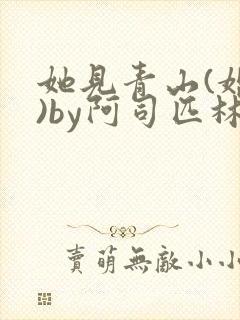 她見青山(婚
)by阿司匹林
賣萌無敵小小